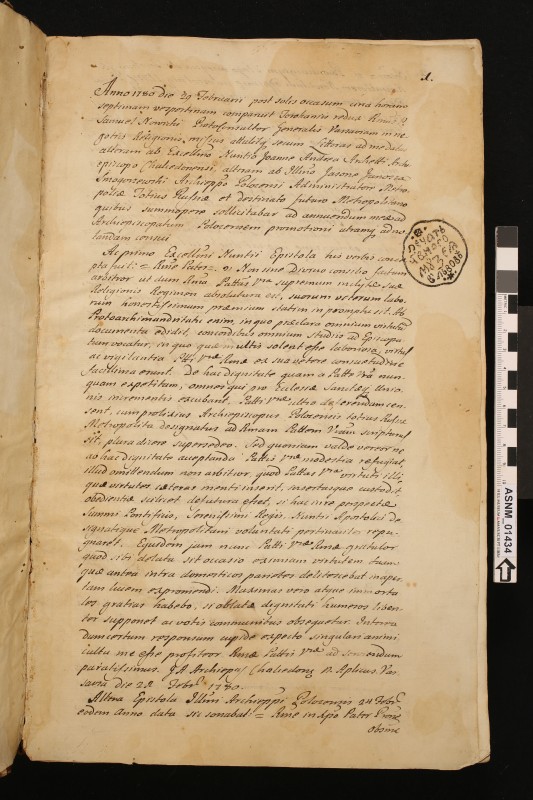 1.
Anno 1780 die 29 Februarii post solis occasum circa horam
septimam vespertinam comparuit Torokanis redux
Samuel Nowicki Protoconsultor Generalis Varsavia in ne
gotiis Religionis secum Litteras ad me dedit
alteram ab Excellmo Nuntio Joanne Andrea Archetti Archi
episcopo Chalcedonensi, alteram ab Illmo Jasone Junosza
Smogorzewski Archieppo Polocensi Administratore Metro
poliae Totius Russiae et destinato futuro Metropolitano
quibus summopere sollicitabar ad annuendum meae ad
Archiepiscopatum Polocensem promotioni
Ac primo Excellmi Nuntii Epistola his verbis conce
pta fuit = Rme Pater = Non sine Divino consilio factum
arbitror ut dum Rma Pattas Vra supremum inclytae suae
Religionis Regimen absolutura est, suorum veterum labo
rum honestissimum praemium statim in promptu sit.
Protoarchimandritatu enim, in quo praeclara omnium virtutum
documenta edidit, concordibus omnium studiis ad Episcopa
tum vocatur, in quo quae multis solent esse laboriosa, virtuti
ac vigilantiae Pttis Vrae Rmae ex sua vetere consuetudine
facillima erunt. De hac dignitate quam a Patte Vra nun
quam expetitam, omnes qui pro Ecclesiae Sanctae Unio
nis incrementis excubant, Patti Vrae ultro deferendam cen
sent, cum prolixius Archiepiscopus Polocensis totius Russiae
Metropolita designatus ad Rmam Pattem Vram scripturus
sit, plura dicere supersedeo. Sed quoniam valde vereor ne
ab hac dignitate acceptanda Pattis Vrae modestia refugiat,
illud omittendum non arbitror, quod Pattas Vra virtuti illi,
quae virtutes caeteras menti inserit, insertasque custodit
obedientiae scilicet defutura esset, si hac in re perspectae
Summi Pontificis, Serenissimi Regis, Nuntii Apostolici de
signatique Metropolitani voluntati pertinaciter repu
gnaret. Equidem jam nunc Patti Vrae Rmae gratulor
quod sibi delata sit occasio eximiam virtutem suam
quae antea intra domesticos parietes delitescebat in aper
tam lucem expromendi. Maximas vero atque immorta
les gratias habebo, si oblatae dignitati humeros liben
ter supponet ac votis communibus obsequetur. Interea
dum certum responsum cupide expecto singulari animi
cultu me esse profiteor Rmae Pattis Vrae ad serviendum
paratissimus. J A Archiepus Chalcedonen N. Aplicus Var
savia die 22 Febr. 1780.
Altera Epistola Illmi Archieppi Polocensis 24 Febr.
eodem anno data sic sonabat = Rme in Xpo Pater
Obsme
ASNM_01434